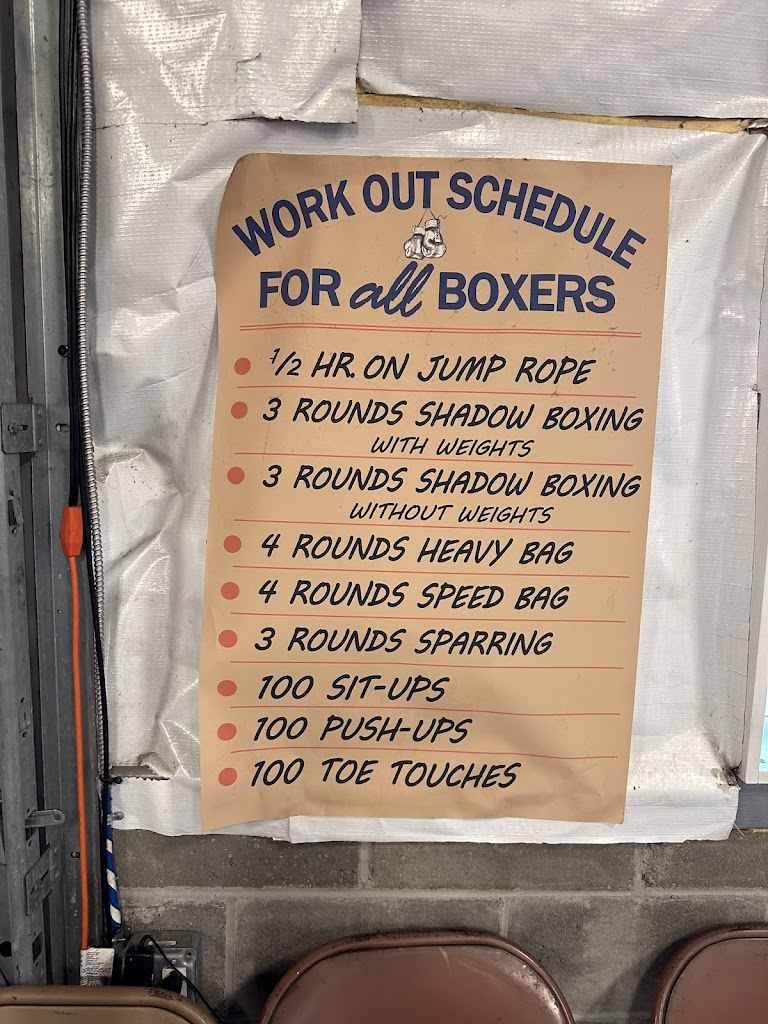 WORK OUT SCHEDULE
FOR all BOXERS
1/2 HR. ON JUMP ROPE
3 ROUNDS SHADOW BOXING
WITH WEIGHTS
3 ROUNDS SHADOW BOXING
WITHOUT WEIGHTS
4 ROUNDS HEAVY BAG
4 ROUNDS SPEED BAG
3 ROUNDS SPARRING
100 SIT-UPS
100 PUSH-UPS
100 TOE TOUCHES